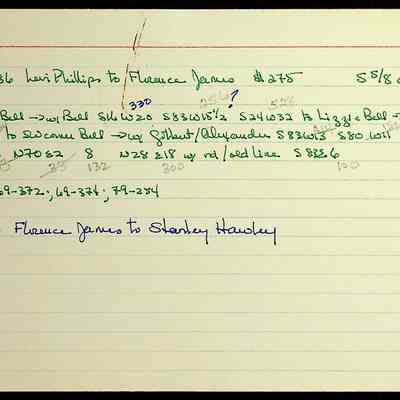 36 Levi Phillips to Florence James $275 S 5/8
330 256 ? 528
Bell → w/ Bell S16W20 S33W15½ S24W32 to Lizzie Bell →
to SW corner Bell → w/ Gilbert/Alexander S83W13 S80
N70E2 8 N28E18 w/ rd/old line S88E6
35 132 300 100
69-372; 69-378; 79-254
Florence James to Stanley Hawley